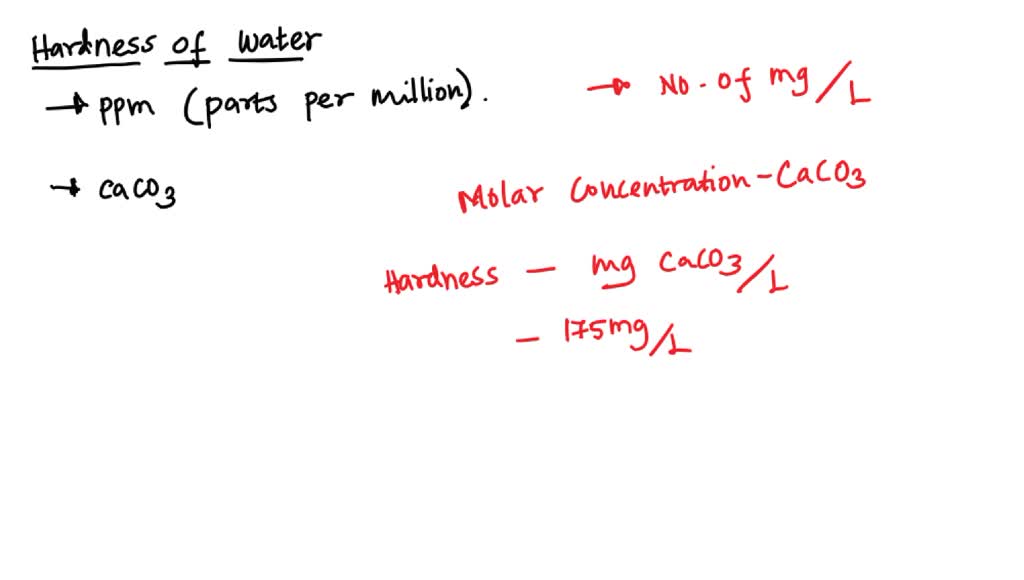 Hardness of water
→ ppm (parts per million).
→ No. of mg/L
→ CaCO3
Molar Concentration - CaCO3
Hardness - mg CaCO3/L
- 175mg/L